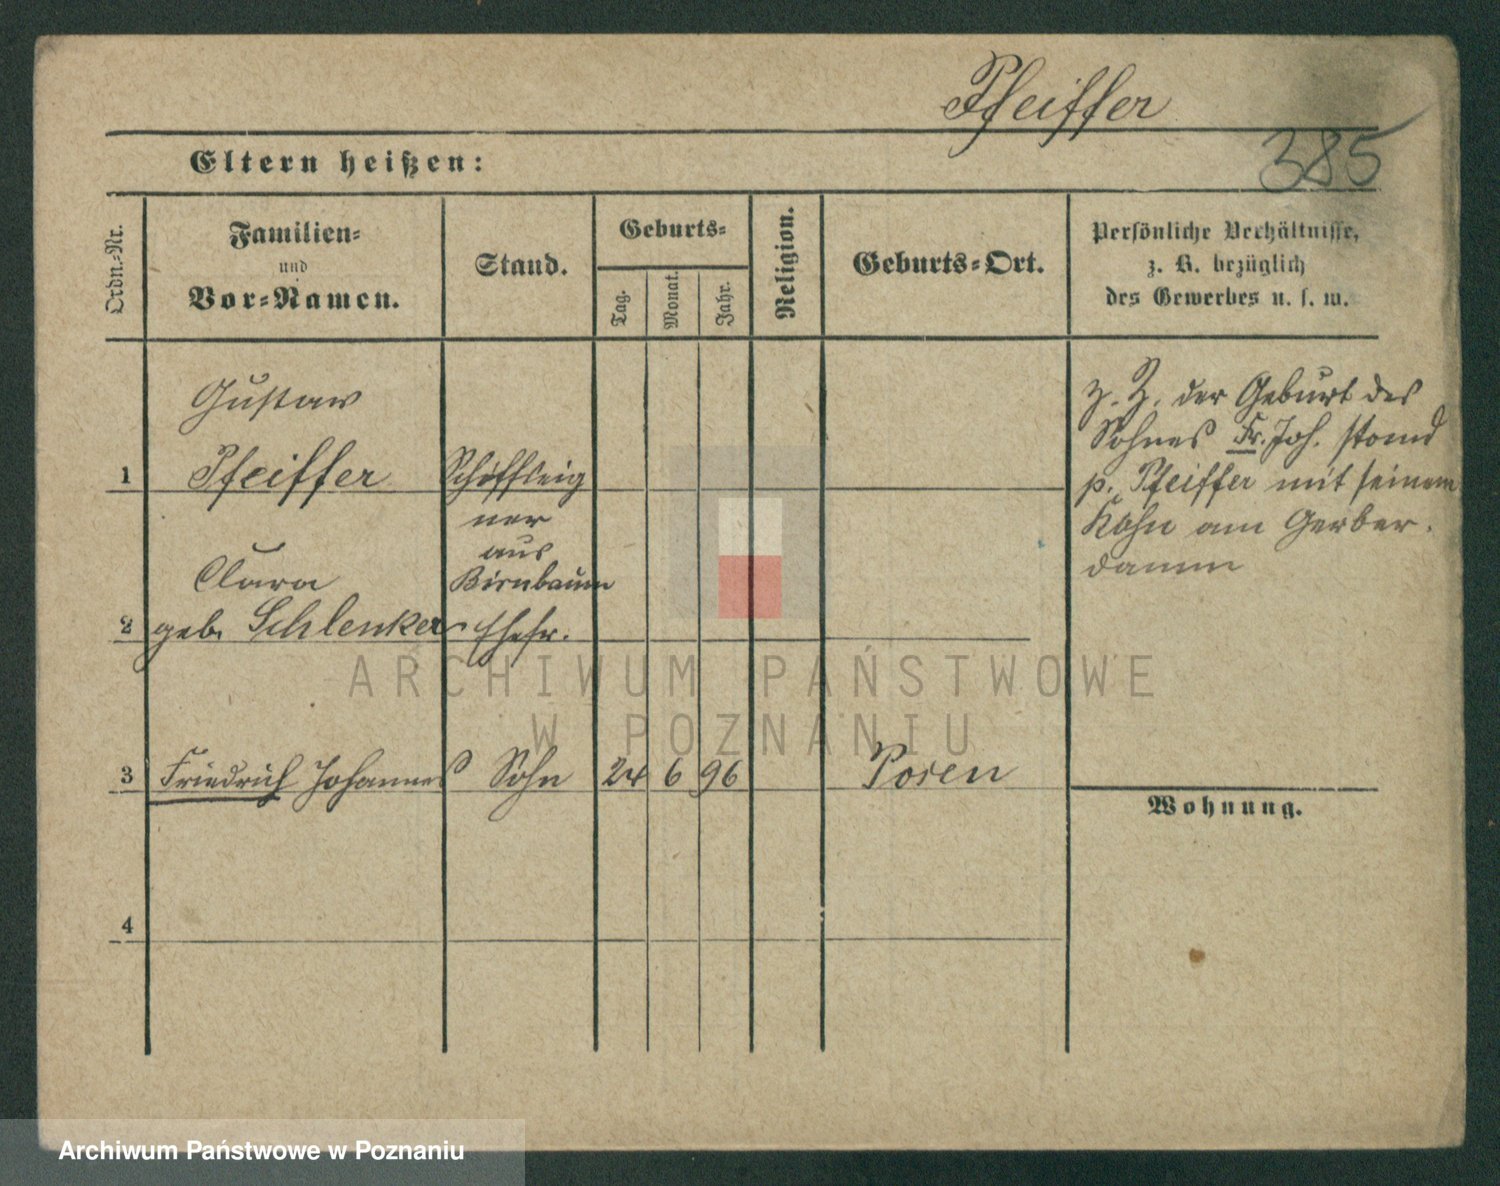 Pfeiffer
385
Eltern heißen:
Ordn.-Nr.
Familien-
und
Vor-Namen.
Stand.
Geburts-
Tag.
Monat.
Jahr.
Religion.
Geburts-Ort.
Persönliche Verhältnisse,
z. B. bezüglich
des Gewerbes u. s. w.
1
Gustaw
Pfeiffer
Schiffseig
ner
aus
Birnbaum
2
Clara
geb. Schlenker
Ehefr.
3
Friedrich Johannes
Sohn
24
6
96
Posen
4
z. Z. der Geburt des
Sohnes Fr. Joh. stand
p. Pfeiffer mit seinem
Kahn am Gerber-
damm
Wohnung.
ARCHIWUM PAŃSTWOWE
W POZNANIU
Archiwum Państwowe w Poznaniu